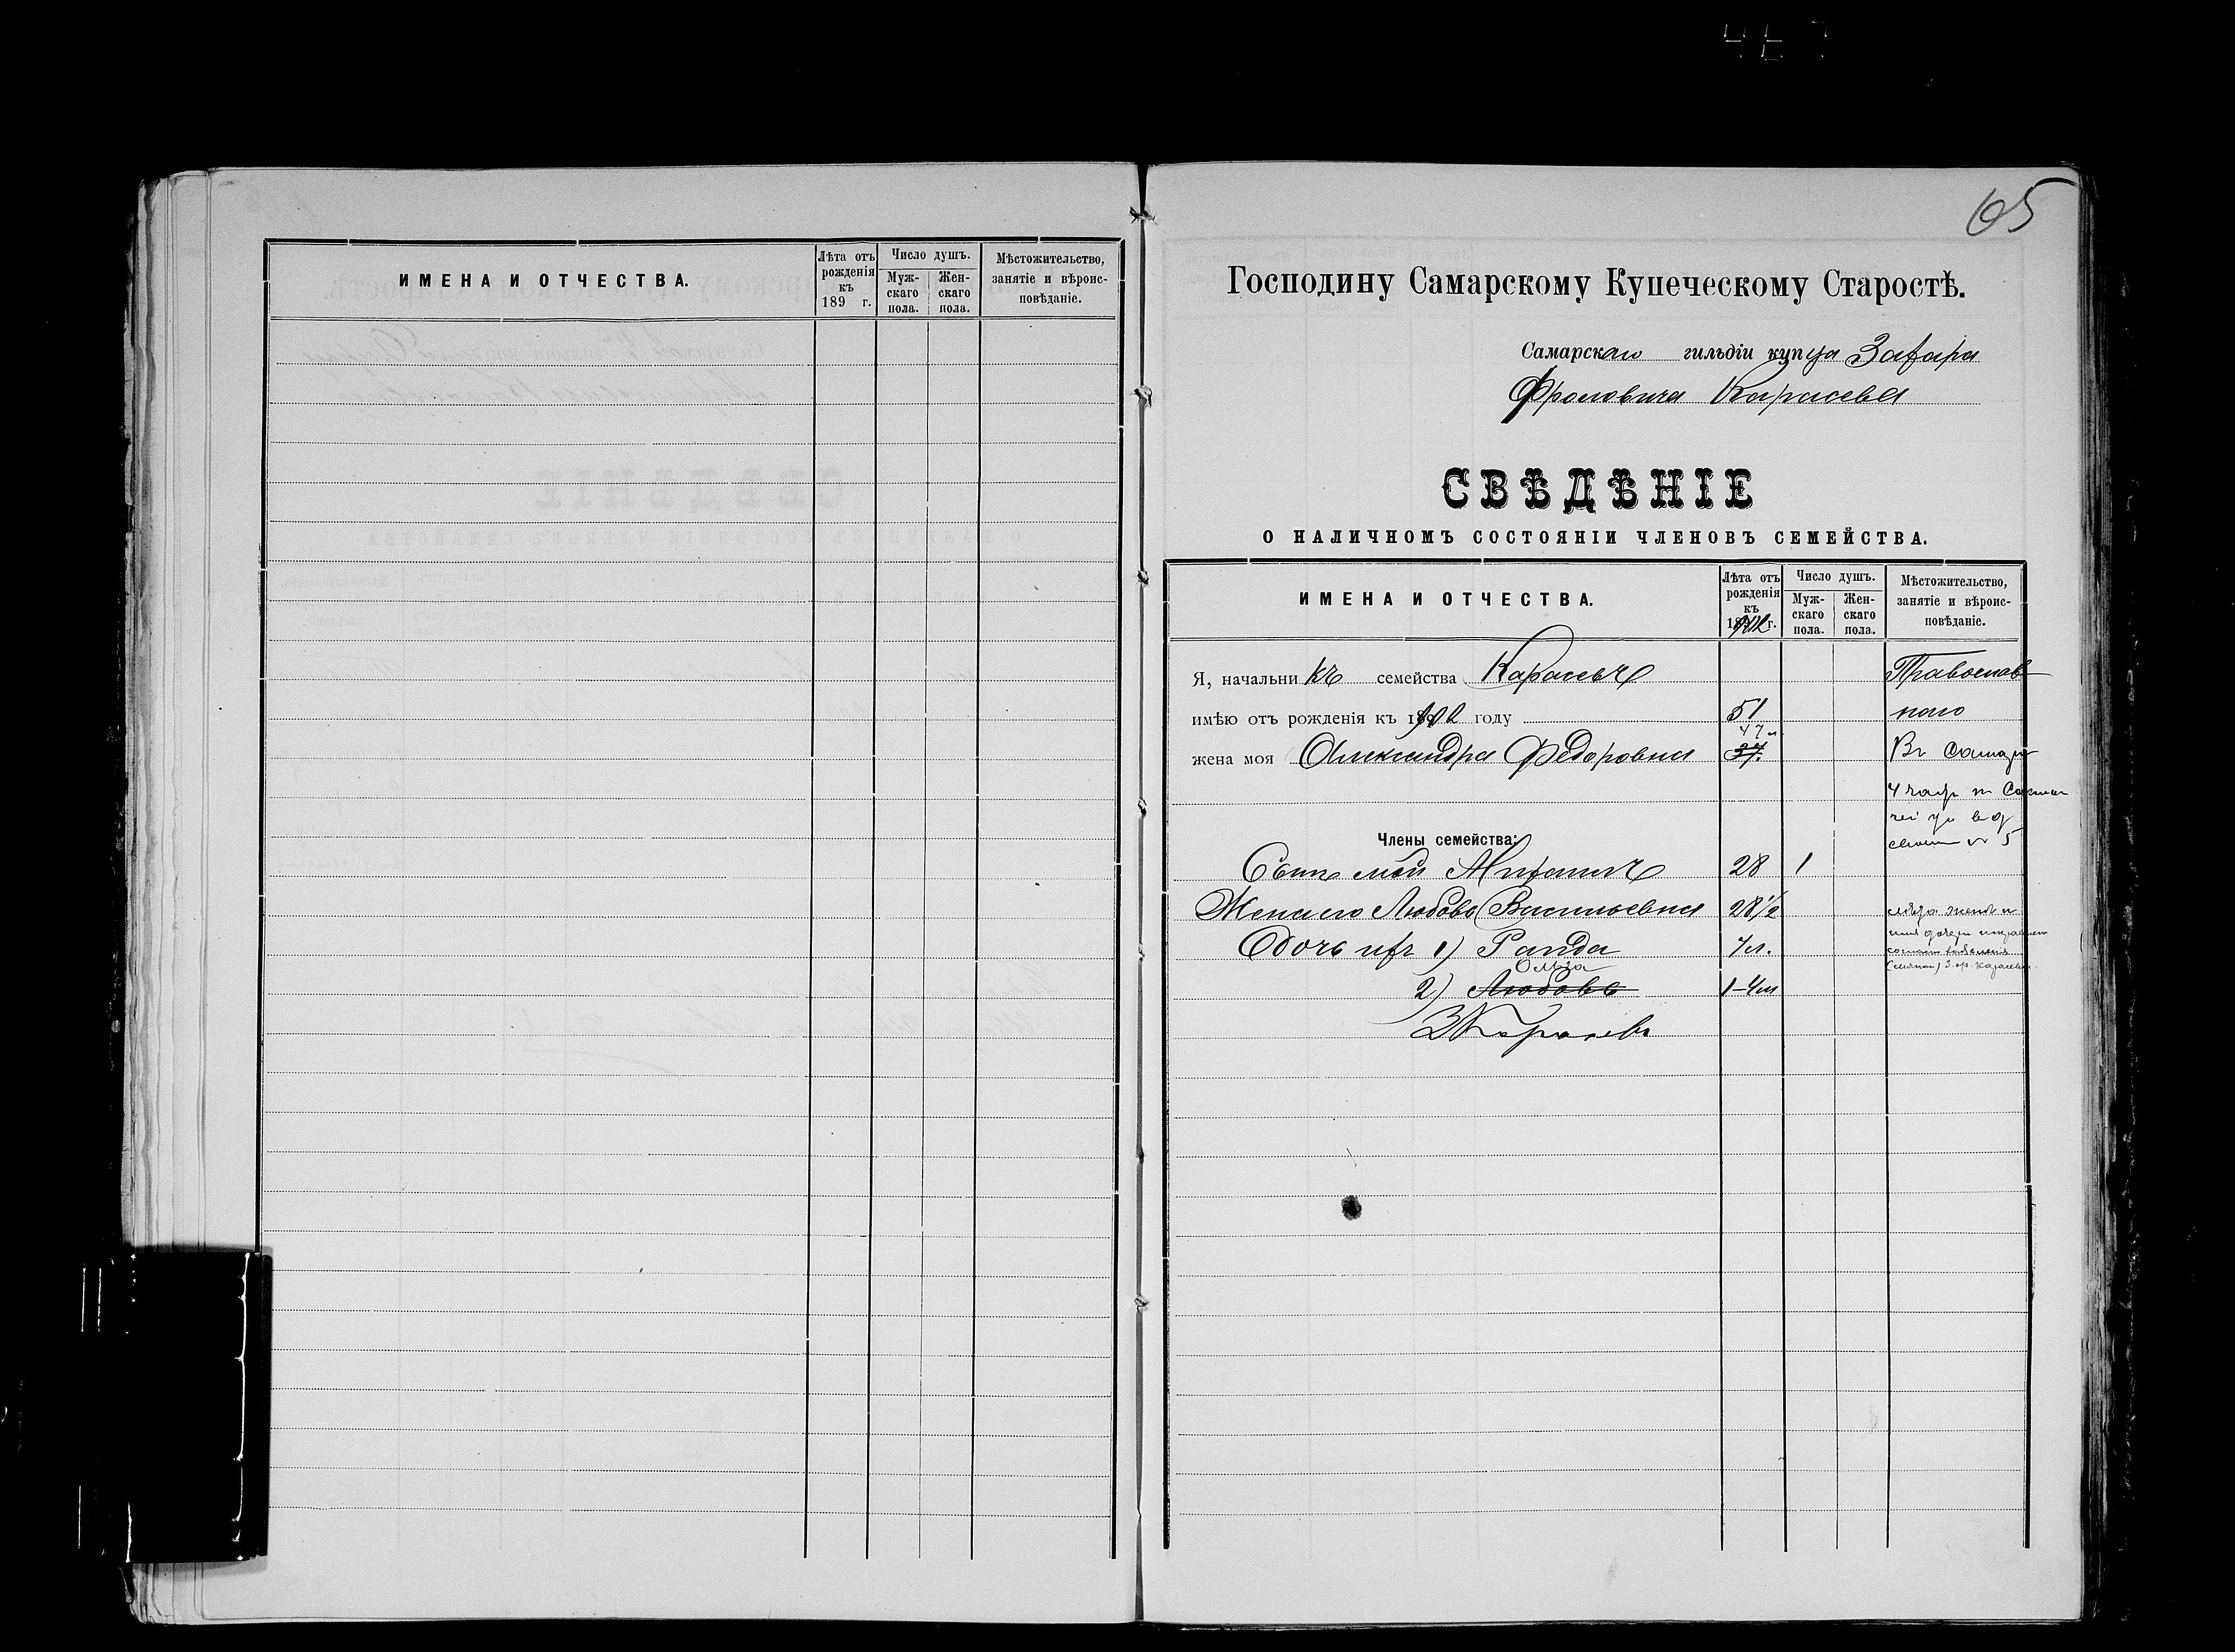 ИМЕНА И ОТЧЕСТВА.
Лѣта отъ рожденія къ 189 г.
Число душъ.
Муж-скаго пола.
Жен-скаго пола.
Мѣстожительство, занятіе и вѣроис-повѣданіе.
65
Господину Самарскому Купеческому Старостѣ.
Самарскаго гильдіи купца Захара
Фроловича Карасева
СВѢДѢНІЕ
О НАЛИЧНОМЪ СОСТОЯНІИ ЧЛЕНОВЪ СЕМЕЙСТВА.
ИМЕНА И ОТЧЕСТВА.
Лѣта отъ рожденія къ 1902 г.
Число душъ.
Муж-скаго пола.
Жен-скаго пола.
Мѣстожительство, занятіе и вѣроис-повѣданіе.
Я, начальникъ семейства Карасевъ Православ
имѣю отъ рожденія къ 1902 году 51 наго
47 л
жена моя Александра Федоровна 37. Въ Самарѣ
4 част
Члены семейства:
№ 5
Сынъ мой Михаилъ 28 1
Жена его Любовь Васильевна 28 1/2
Дочь ихъ 1) Раиda 4 л.
Ольга
2) Любовь 1-4 м
З Карасевъ